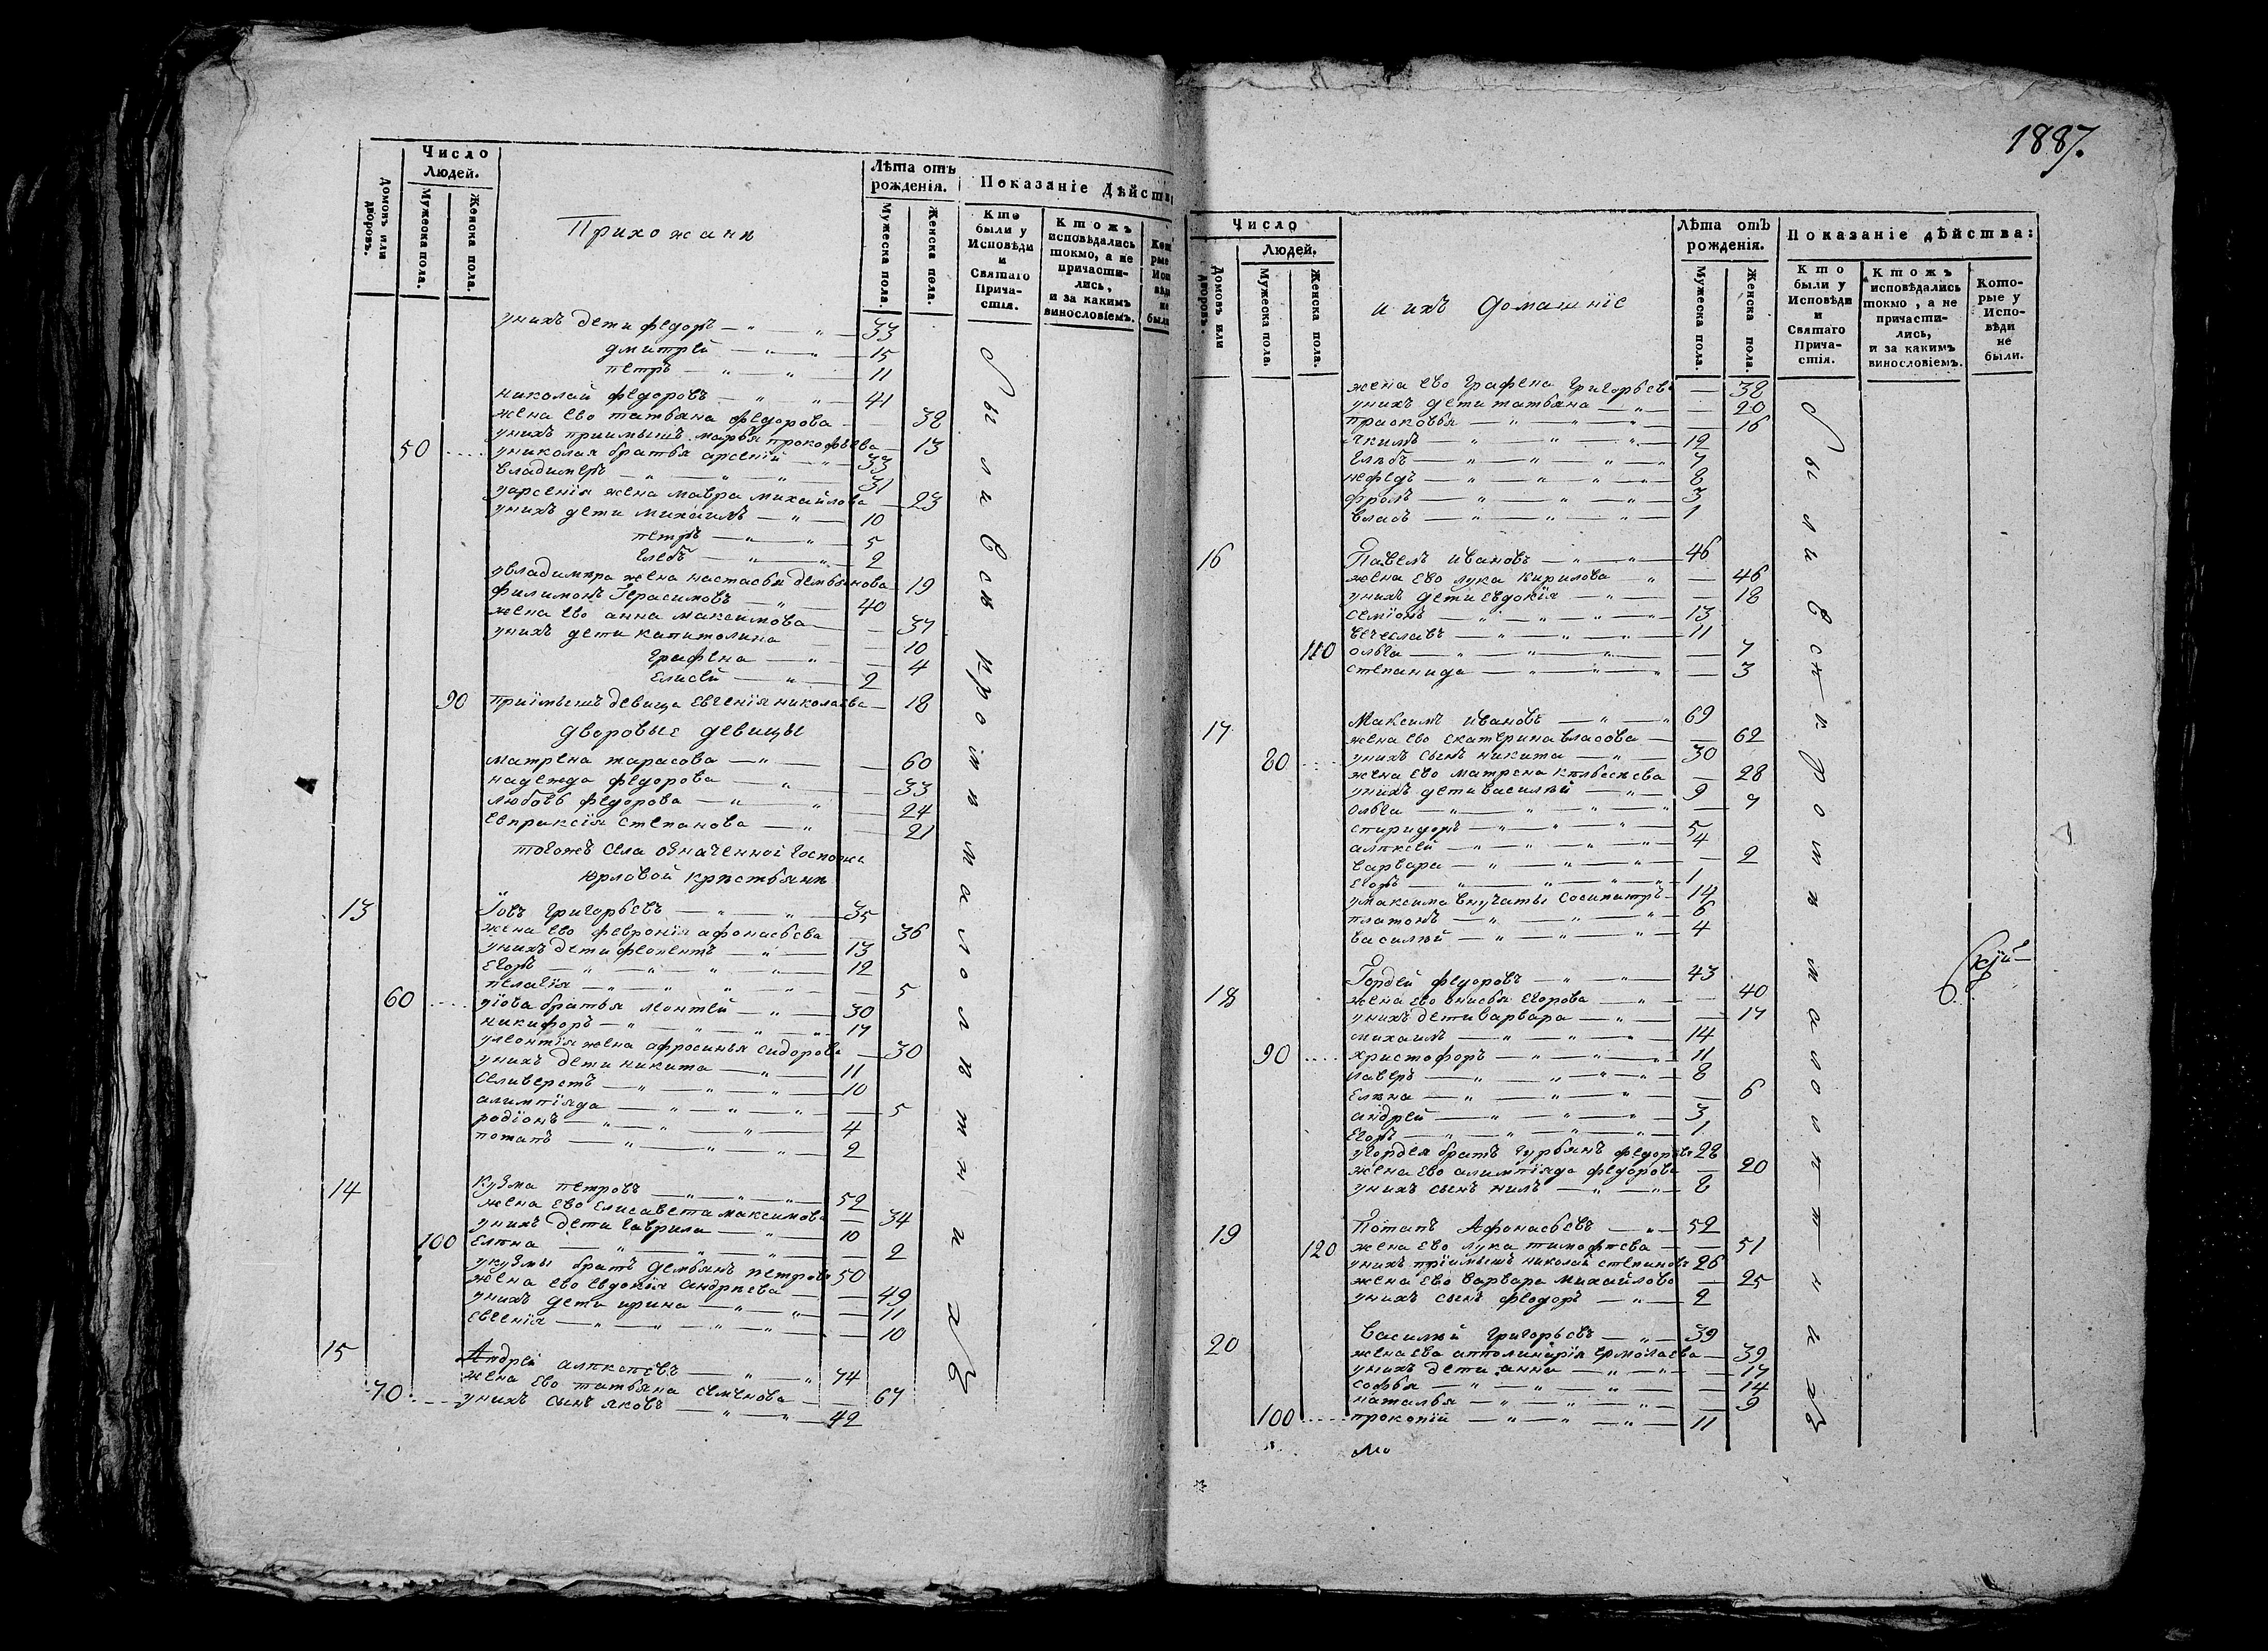 Число
Людей.
Домовъ или дворовъ.
Мужеска пола.
Женска пола.
Прихожанѣ
Лѣта отъ рожденія.
Мужеска пола.
Женска пола.
Показаніе Дѣйств
Кто были у Исповѣди и Святаго Прича-стія.
Ктожъ исповѣдались токмо, а не причасти-лись, и за какимъ винословіемъ.
унихъ дети федоръ — „ — „ — 33
дмитрей — „ — „ — 15
петръ — „ — „ — 11
николай федоровъ — „ — „ — 41
жена ево татьяна федорова — — 38
унихъ приимышъ марья прокофьева — 13
50 .... униколая братья арсеній — „ — 33
владимеръ — „ — „ — „ 31
уарсенія жена мавра михайлова — 23
унихъ дети михаилъ — „ — 10
петръ — „ — „ — 5
глебъ — „ — „ — 2
увладимира жена настасья демьянова 19
филимонъ Герасимовъ — „ — 40
жена ево анна максимова — — 37
унихъ дети капитолина — — 10
Графена — „ — — 4
Елисей — „ — 2
90 пріимышъ девица евгенія николаева — 18
дворовые девицы
матрена тарасова — „ — — 60
надежда федорова — „ — — 33
любовь федорова — „ „ — 24
евпраксія степанова — „ — 21
тогожъ села означенной госпожи
юрловой крѣстьянѣ
13 Іовъ Григорьевъ — „ — „ — 35
жена ево февронія афонасьева — 36
унихъ дети флоентъ — „ — 13
Егоръ — „ — „ — „ — „ — 12
пелагія — „ — „ — „ — „ — 5
60 .... уіова братья леонтей — „ — 30
никифоръ — „ — „ — „ — „ 17
улеонтія жена афросинья сидорова — 30
унихъ дети никита — „ — 11
селиверстъ — „ — „ — „ — 10
алимпіяда — „ — „ — „ — 5
родіонъ — „ — „ — „ — 4
потапъ — „ — „ — „ — 2
14 Кузма петровъ — „ — „ — 52
жена ево елисавета максимова — 34
унихъ дети гаврила — „ — 10
100 Елѣна — „ — „ — „ — 2
укузмы братъ демьянъ петровъ 50
жена ево евдокія андрѣева — — 49
унихъ дети ирина — „ — „ — 11
евгенія — „ — „ — „ — „ — 10
15 Андрей алѣксѣевъ — „ — „ 74
жена ево татьяна семенова — — 67
70 .... унихъ сынъ яковъ — „ — „ — 42
были в сѣ кромѣ малолѣтнихъ
1887.
Число
Людей.
Домовъ или дворовъ.
Мужеска пола.
Женска пола.
и ихъ домашніе
Лѣта отъ рожденія.
Мужеска пола.
Женска пола.
Показаніе дѣйства:
Кто были у Исповѣди и Святаго Прича-стія.
Ктожъ исповѣдались токмо, а не причасти-лись, и за какимъ винословіемъ.
Кото-рые у Испо-вѣди не были.
жена ево Графена Григорьева — 38
унихъ дети татьяна — „ — — 20
прасковья — „ — „ — „ — 16
Якимъ — „ — „ — „ — 12
Глѣбъ — „ — „ — „ — „ 7
нефедъ — „ — „ — „ — 8
фролъ — „ — „ — „ — 3
власъ — „ — „ — „ — 1
16 Павелъ ивановъ — „ — „ — 46
жена ево лукѣ кирилова — „ — 46
унихъ дети евдокія — „ — — 18
семіонъ — „ — „ — „ — 13
вечеславъ — „ — „ — „ — 11
110 ольга — „ — „ — „ — 7
степанида — „ — „ — „ — 3
17 Максимъ ивановъ — „ — „ 69
жена ево екатерина власова — — 62
80 .... унихъ сынъ никита — „ — 30
жена ево матрена — 28
унихъ дети василѣй — „ — 9
ольга — „ — „ — „ — „ — 7
спиридонъ — „ — „ — „ — 5
алѣксей — „ — „ — „ — 4
варвара — „ — „ — „ — 2
егоръ — „ — „ — „ — 1
умаксима внучаты сосипатръ — 14
платонъ — „ — „ — „ — 6
василѣй — „ — „ — „ — 4
18 Гордей федоровъ — „ — „ — 43
жена ево анисья егорова — „ — 40
унихъ дети варвара — „ — — 17
михаилъ — „ — „ — „ — 14
90 .... христофоръ — „ — „ — „ 11
лаверъ — „ — „ — „ — 8
елѣна — „ — „ — „ — 6
андрей — „ — „ — „ — 3
егоръ — „ — „ — „ — 1
угордея братъ гурьянъ федоровъ 28
жена ево алимпіяда федорова — 20
унихъ сынъ нилъ — „ — „ — 8
19 Потапъ Афонасьевъ — „ — 52
120 жена ево лукѣ тимофѣева — — 51
унихъ пріимышъ николай степановъ 26
жена ево варвара михайлова — 25
унихъ сынъ феодоръ — „ — 2
20 василѣй Григорьевъ — „ — 39
жена ева апполинарія ермолаева — 39
унихъ дети анна — „ — „ — 17
софья — „ — „ — „ — 14
наталья — „ — „ — „ — 9
100 .... прокопій — „ — „ — „ — 11
были всѣ кромѣ малолѣтнихъ